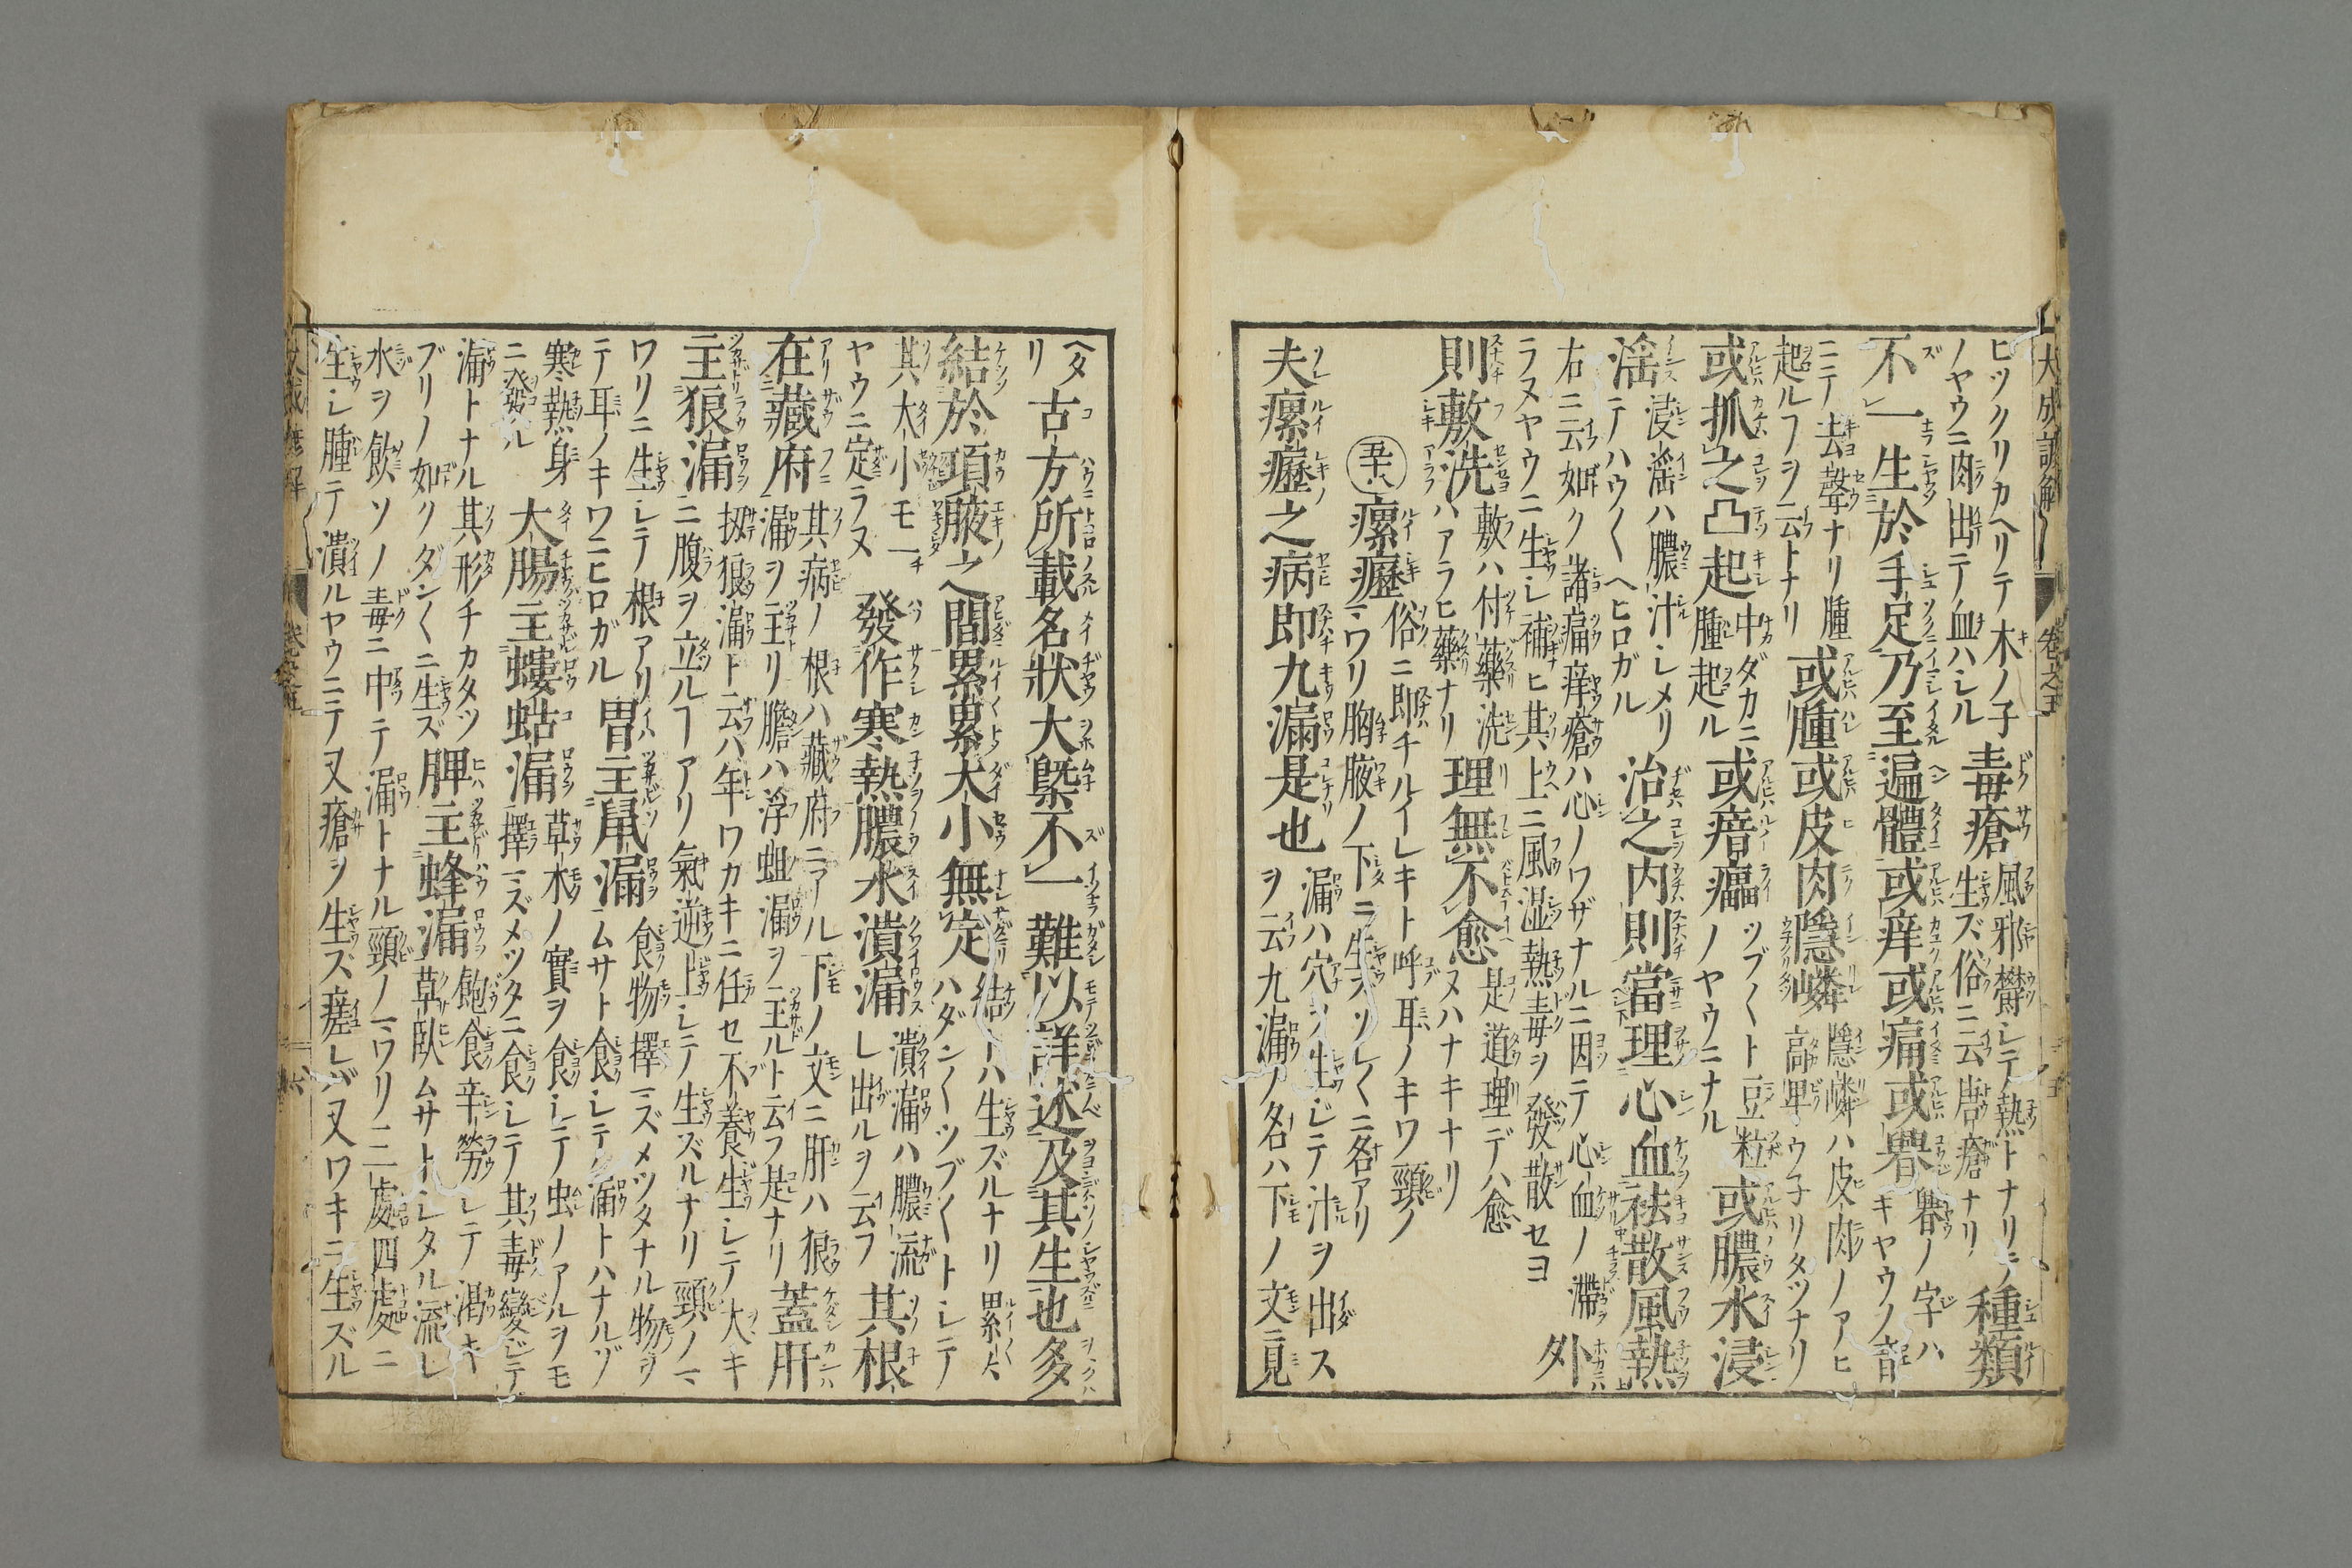 大成訓解 卷之五
ヒツクリカヘリテ木ノ子
ノヤウニ肉出テ血ハシル
毒瘡
風邪欝シテ熱トナリ
生ズ俗ニ云唐瘡ナリ
種類
不一生於手足乃至遍體或痒或痛或㿋
㿋ノ字ハ
キヤウノ音
ニテ去聲ナリ腫
起ルヿヲ云トナリ
或腫或皮肉隱嶙
隱嶙ハ皮肉ノアヒ
高卑ウ子リタツナリ
或抓之凸起
中ダカニ
腫起ル
或瘖㿔
ツブ〱ト豆粒
ノヤウニナル
或膿水浸
淫
浸淫ハ膿汁シメリ
テハウ〱ヘヒロガル
治之内則當理心血祛散風熱
右ニ云如ク諸痛痒瘡ハ心ノワザナルニ因テ心血ノ滯
ラヌヤウニ生シ補ヒ其上ニ風湿熱毒ヲ發散セヨ
外
則敷洗
敷ハ付藥洗
ハアラヒ藥ナリ
理無不愈
是道理デハ愈
ヌハナキナリ
五十八 瘰癧
俗ニ即チルイレキト呼耳ノキワ頸ノ
マワリ胸腋ノ下ニ生ズソレ〱ニ各アリ
夫瘰癧之病即九漏是也
漏ハ穴ヲ生ジテ汁ヲ出ス
ヲ云九漏ノ名ハ下ノ文ニ見
ヘタ
リ
古方所載名狀大槩不一難以詳述及其生也多
結於項腋之間累累大小無定
結ハ生ズルナリ累々
ハダン〱ツブ〱トシテ
其大小モ一チ
ヤウニ定ラヌ
發作寒熱膿水潰漏
潰漏ハ膿流
レ出ルヲ云フ
其根
在藏府
其病ノ根ハ藏府ニアル下ノ文ニ肝ハ狼
漏ヲ主リ膽ハ浮蛆漏ヲ主ルト云フ是ナリ
蓋肝
主狼漏
扨狼漏ト云ハ年ワカキニ任セ不養生シテ大キ
ニ腹ヲ立ルヿアリ氣逆上シテ生ズルナリ頸ノマ
ワリニ生シテ根アリ
テ耳ノキワニヒロガル
胃主鼠漏
食物擇ミズメツタナル物ヲ
ムサト食シテ漏トハナルゾ
寒熱身
ニ發ル
大腸主螻蛄漏
草木ノ實ヲ食シテ虫ノアルヲモ
擇ミズメツタニ食シテ其毒變ジテ
漏トナル其形チカタツ
ブリノ如クダン〱ニ生ズ
脾主蜂漏
飽食辛勞シテ渇キ
草臥ムサトシタル流レ
水ヲ飲ソノ毒ニ中テ漏トナル頸ノマワリ二三處四處ニ
生シ腫テ潰ルヤウニテ又瘡ヲ生ズ瘥レバ又ワキニ生ズル
六